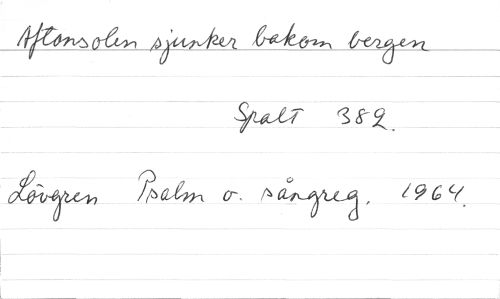 Aftonsolen sjunker bakom bergen
Spalt 382.
Lövgren Psalm o. sångreg. 1964.